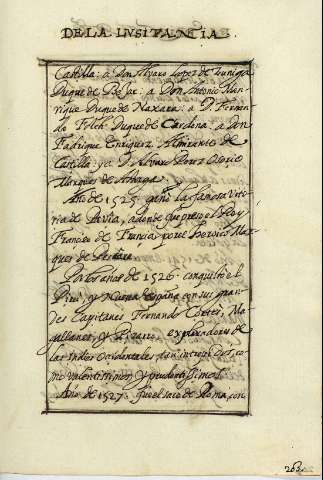 DE LA LUSITANIA.
Castilla: a Don Alvaro Lopez de Zuniga
Duque de Bejar: a Don Antonio Man-
rique Duque de Naxara: a D. Fernan-
do Folch Duque de Cardona: a Don
Fadrique Enriquez Almirante de
Castilla: y a D. Alvar Perez Osorio
Marques de Astorga.
Año de 1525. gano la famosa vito-
ria de Pavia, a donde fue preso el Rey
Francisco de Francia, por el heroico Mar-
ques de Pescara.
Por los años de 1526. conquistó el
Piru, y Nueva España con sus gran-
des Capitanes Fernando Cortes, Ma-
gallanes, y Pizarro exploradores de
las Indias Ocidentales, tan intrepidos, co-
mo valentissimos, y prudentissimos.
Año de 1527. fue el saco de Roma, con
263